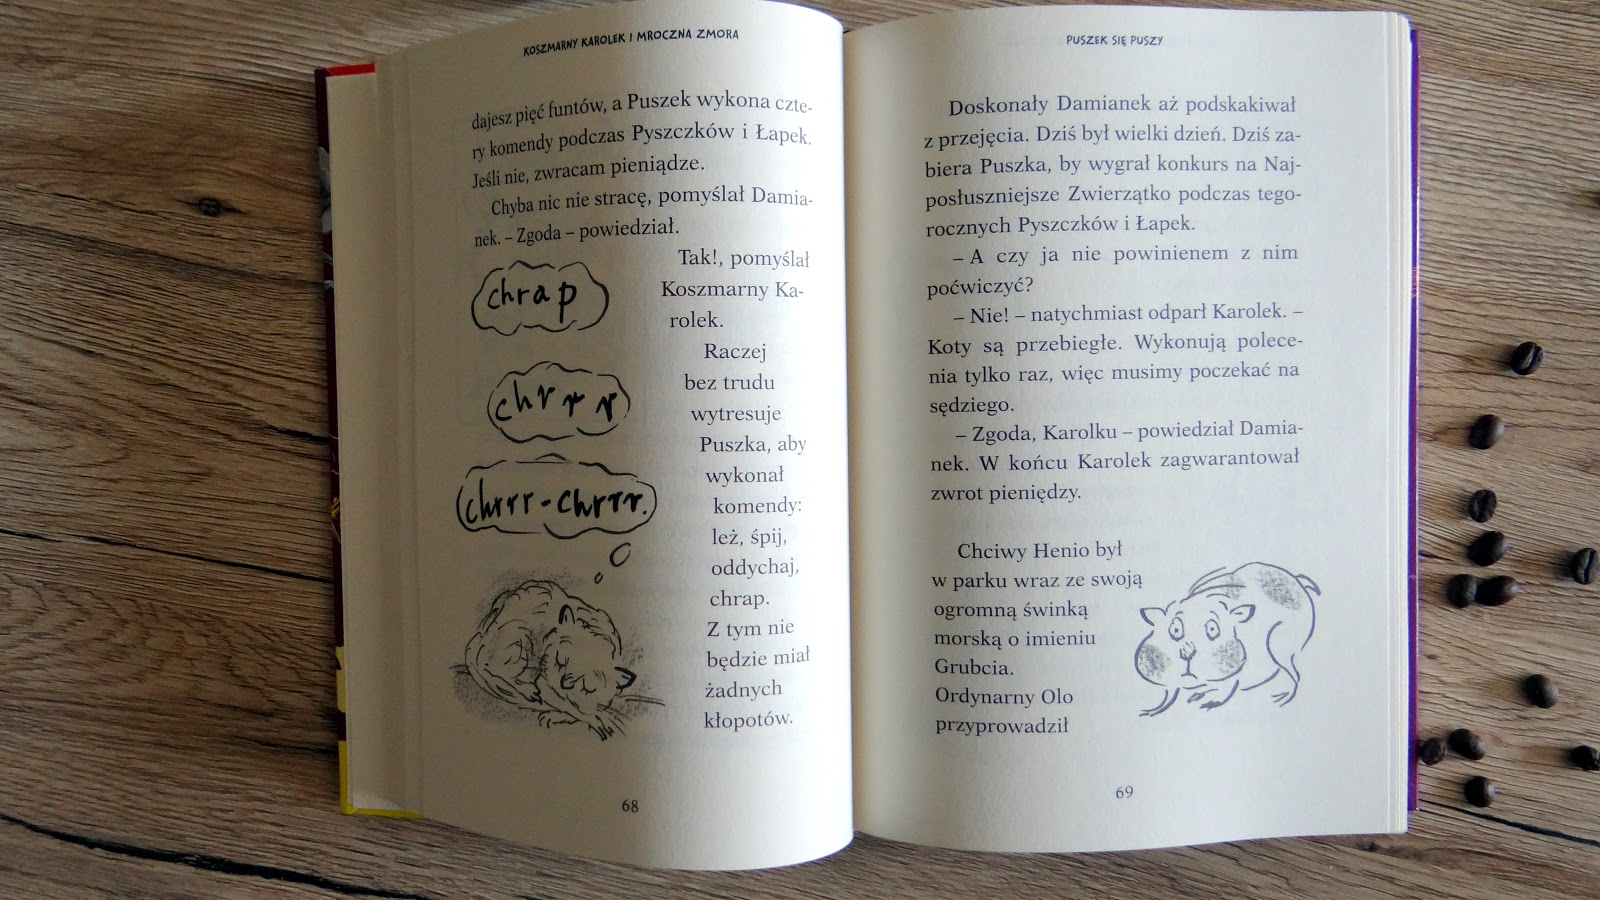 KOSZMARNY KAROLEK I MROCZNA ZMORA
dajesz pięć funtów, a Puszek wykona czte-
ry komendy podczas Pyszczków i Łapek.
Jeśli nie, zwracam pieniądze.
Chyba nic nie stracę, pomyślał Damia-
nek. – Zgoda – powiedział.
Tak!, pomyślał
Koszmarny Ka-
rolek.
Raczej
bez trudu
wytresuje
Puszka, aby
wykonał
komendy:
leż, śpij,
oddychaj,
chrap.
Z tym nie
będzie miał
żadnych
kłopotów.
chrap
chrrr
chrrr-chrrr.
68
PUSZEK SIĘ PUSZY
Doskonały Damianek aż podskakiwał
z przejęcia. Dziś był wielki dzień. Dziś za-
biera Puszka, by wygrał konkurs na Naj-
posłuszniejsze Zwierzątko podczas tego-
rocznych Pyszczków i Łapek.
– A czy ja nie powinienem z nim
poćwiczyć?
– Nie! – natychmiast odparł Karolek. –
Koty są przebiegłe. Wykonują polece-
nia tylko raz, więc musimy poczekać na
sędziego.
– Zgoda, Karolku – powiedział Damia-
nek. W końcu Karolek zagwarantował
zwrot pieniędzy.
Chciwy Henio był
w parku wraz ze swoją
ogromną świnką
morską o imieniu
Grubcia.
Ordynarny Olo
przyprowadził
69